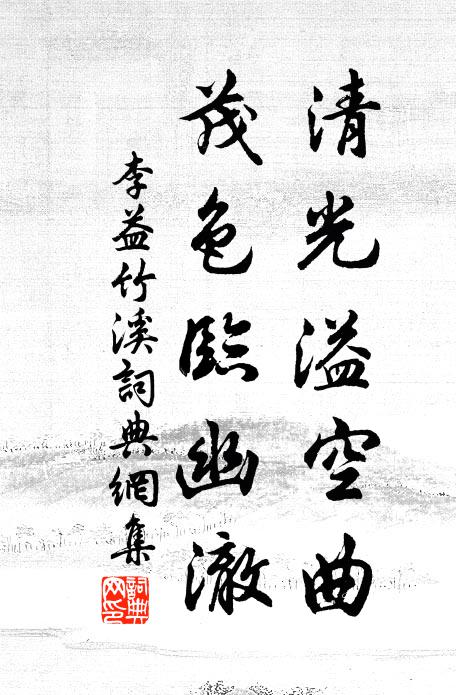 清光溢空曲
茂色臨幽澈
李益竹溪詞典網集
詞典網印